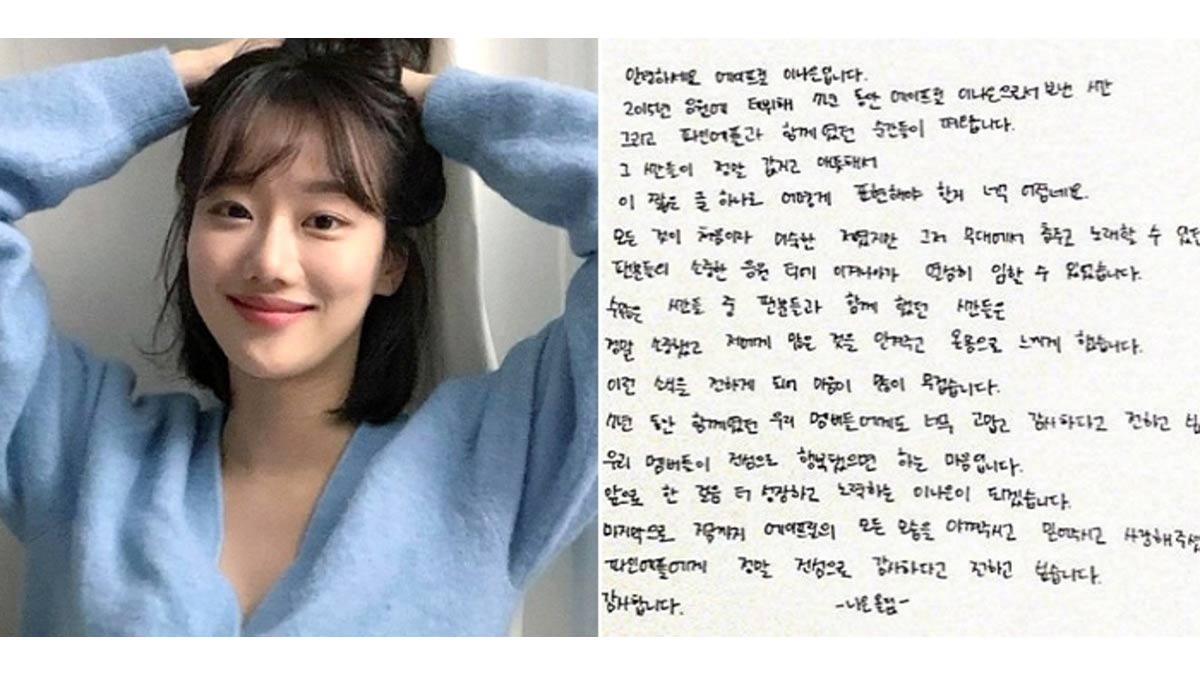 안녕하세요 에이프릴 이나은입니다.
2015년 응원에 더위해 7년 동안 에이프릴 이나은으로서 보낸 시간
그리고 파인에플과 함께 했던 순간들이 떠오릅니다.
그 시간들이 정말 값지고 애틋해서
이 짧은 글 하나로 어떻게 표현해야 할지 너무 어렵네요.
모든 것이 처음이라 미숙한 저였지만 그저 무대에서 춤추고 노래할 수 있었던
팬분들의 소중한 응원 덕에 이겨나아가 열심히 임할 수 있었습니다.
수많은 시간들 중 팬분들과 함께 했던 시간들은
정말 소중했고 저에게 많은 것을 안겨주고 온몸으로 느끼게 했습니다.
이런 소식을 전하게 되어 마음이 많이 무겁습니다.
7년 동안 함께했던 우리 멤버들에게도 너무 고맙고 감사하다고 전하고 싶
우리 멤버들이 진심으로 행복했으면 하는 마음입니다.
앞으로 한 걸음 더 성장하고 노력하는 이나은이 되겠습니다.
마지막으로 지금까지 에이프릴의 모든 모습을 아껴주시고 믿어주시고 사랑해주셨
파인에플에게 정말 진심으로 감사하다고 전하고 싶습니다.
감사합니다. -나은 올림-